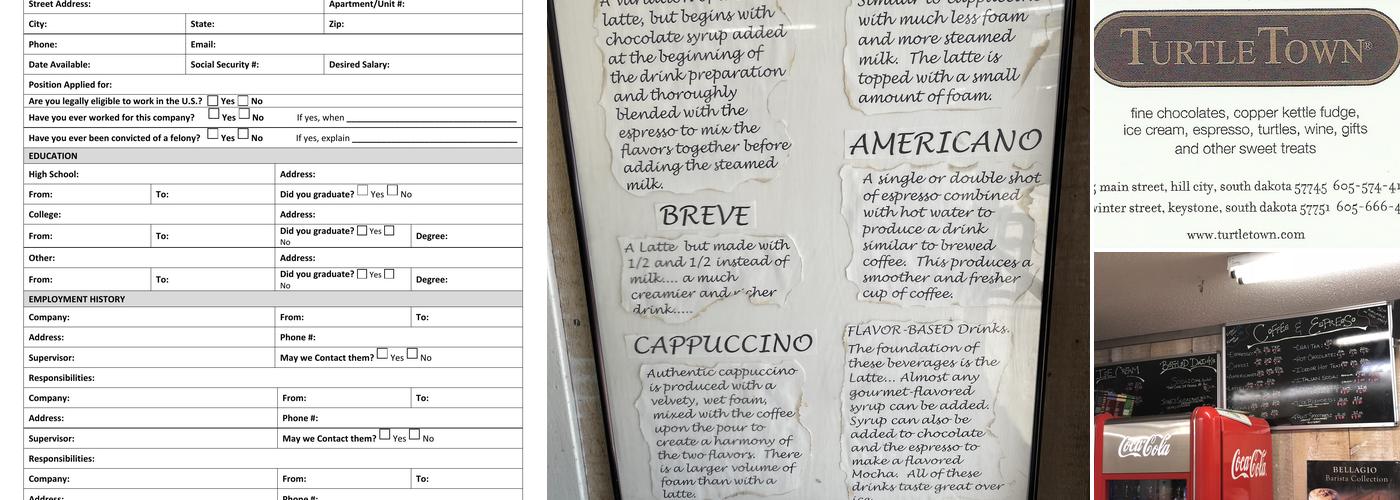 Street Address:
Apartment/Unit #:
City:
State:
Zip:
Phone:
Email:
Date Available:
Social Security #:
Desired Salary:
Position Applied for:
Are you legally eligible to work in the U.S.? Yes No
Have you ever worked for this company? Yes No If yes, when
Have you ever been convicted of a felony? Yes No If yes, explain
EDUCATION
High School:
Address:
From:
To:
Did you graduate? Yes No
College:
Address:
From:
To:
Did you graduate? Yes
No
Degree:
Other:
Address:
From:
To:
Did you graduate? Yes
No
Degree:
EMPLOYMENT HISTORY
Company:
From:
To:
Address:
Phone #:
Supervisor:
May we Contact them? Yes No
Responsibilities:
Company:
From:
To:
Address:
Phone #:
Supervisor:
May we Contact them? Yes No
Responsibilities:
Company:
From:
To:
Address:
Phone #:
latte, but begins with
chocolate syrup added
at the beginning of
the drink preparation
and thoroughly
blended with the
espresso to mix the
flavors together before
adding the steamed
milk.
BREVE
A Latte but made with
1/2 and 1/2 instead of
milk.... a much
creamier and richer
drink.....
CAPPUCCINO
Authentic cappuccino
is produced with a
velvety, wet foam,
mixed with the coffee
upon the pour to
create a harmony of
the two flavors. There
is a larger volume of
foam than with a
latte.
Similar to
with much less foam
and more steamed
milk. The latte is
topped with a small
amount of foam.
AMERICANO
A single or double shot
of espresso combined
with hot water to
produce a drink
similar to brewed
coffee. This produces a
smoother and fresher
cup of coffee.
FLAVOR-BASED Drinks.
The foundation of
these beverages is the
Latte... Almost any
gourmet-flavored
syrup can be added.
Syrup can also be
added to chocolate
and the espresso to
make a flavored
Mocha. All of these
drinks taste great over
TURTLE TOWN®
fine chocolates, copper kettle fudge,
ice cream, espresso, turtles, wine, gifts
and other sweet treats
main street, hill city, south dakota 57745 605-574-4
winter street, keystone, south dakota 57751 605-666-4
www.turtletown.com
COFFEE & ESPRESSO
ICE CREAM
Coca-Cola
Coca-Cola
BELLAGIO
Barista Collection